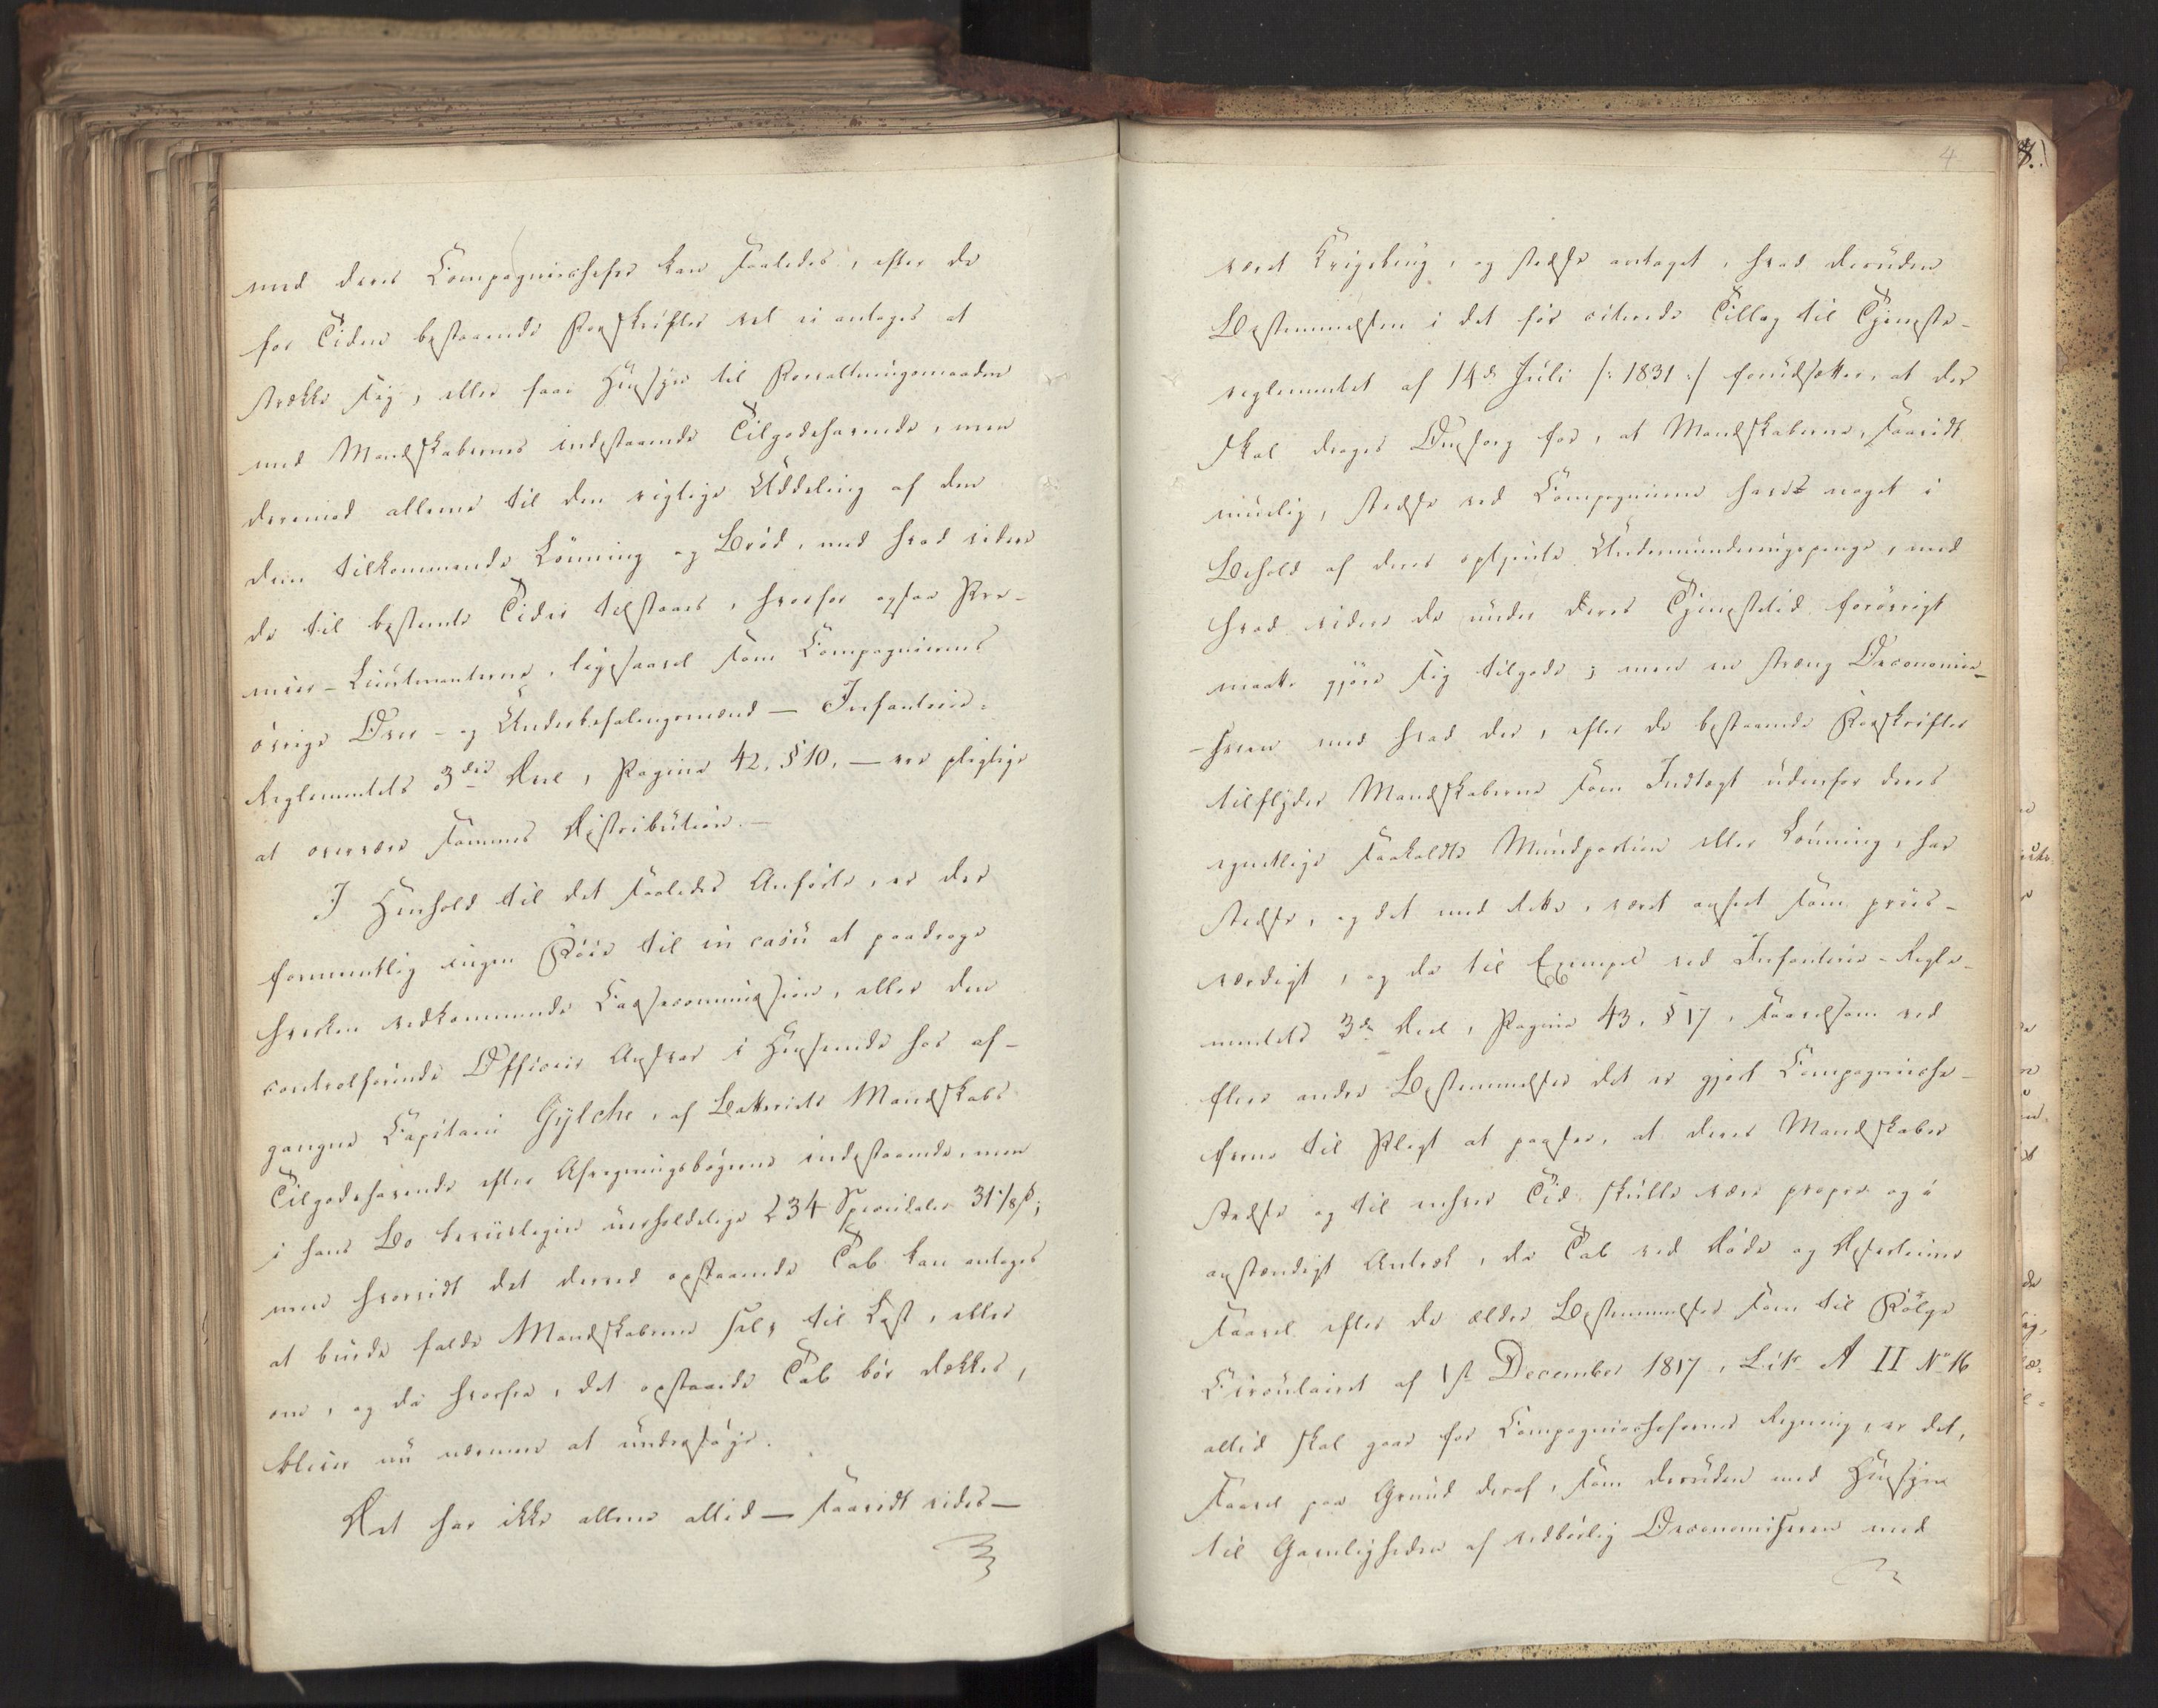 med deres Compagniechefer kan saaledes, efter de
for Tiden bestaaende Forskrifter vel ei antages at
strække sig, eller have Hensyn til Forvaltningsmaaden
med Mandskabernes indestaaende Tilgodehavende, men
derimod allene til den rigtige Uddeling af den
dem tilkommende Lønning og Brød, med hvad videre
de til bestemte Tider tilstaaes, hvorfor ogsaa Pre-
mier-Lieutenanterne, ligesaavel som Compagniernes
øvrige Over- og Underbefalingsmænd — Infanterie-
Reglementets 3die Deel, Pagina 42, § 10, — ere pligtige
at overvære sammes Distribution. —
I Henhold til det saaledes Anførte, er der
formeentlig ingen Føie til in casu at paadrage
hverken vedkommende Cassecommission, eller den
controllerende Officeer Ansvar i Henseende hos af-
gangne Capitain Gylche, af Batteriets Mandskabs
Tilgodehavende efter Afregningsbøgerne indestaaende, men
i hans Bo beviisligen uerholdelige 234 Speciedaler 31 1/8 ß;
men hvorvidt det derved opstaaende Tab kan antages
at burde falde Mandskaberne selv til Last, eller
om, og da hvorfra, det opstaaede Tab bør dækkes,
bliver nu nærmere at undersøge.
Det har ikke allene altid — saavidt vides —
4
været Krigsbrug, og stedse antaget, hvad desuden
Bestemmelsen i det før citerede Tillæg til Tjeneste-
reglementet af 14de Juli /: 1831 :/ forudsætter, at der
skal drages Omsorg for, at Mandskaberne, saavidt
muelig, stedse ved Compagnierne have noget i
Behold af deres optjente Undermunderingspenge, med
hvad videre de under deres Tjenestetid forøvrigt
maatte gjøre sig tilgode; men en streng Oeconomise-
-heren med hvad der, efter de bestaaende Forskrifter
tilflyder Mandskaberne som Indtægt udenfor deres
egentlige saakaldte Mundportion eller Lønning, har
stedse, og det med Rette, været anseet som priis-
værdigt, og da til Exempel ved Infanterie-Regle-
mentets 3die Deel, Pagina 43, § 17, saavelsom ved
flere andre Bestemmelser det er gjort Compagnieche-
ferne til Pligt at paasee, at deres Mandskaber
stedse og til enhver Tid skulle være propre og i
anstændigt Antræk, da Tab ved Døde og Deserteurer
saavel efter de ældre Bestemmelser som til Følge
Circulairet af 1ste December 1817, Litr. A II No 16
altid skal gaae for Compagniechefernes Regning, er det,
saavel paa Grund deraf, som desuden med Hensyn
til Gavnligheden af vedbørlig Oeconomiseren med